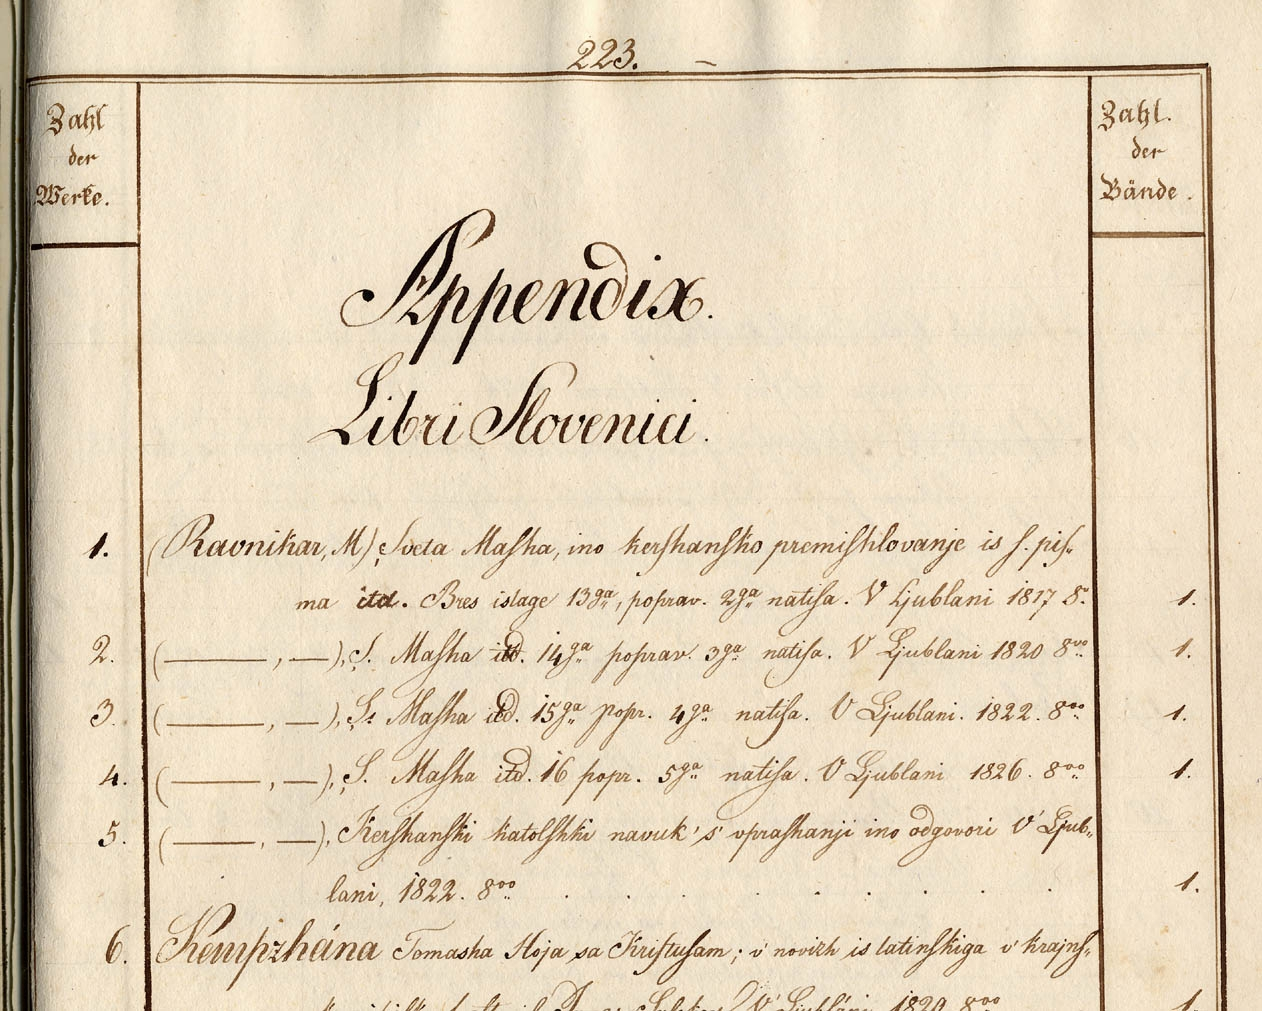 223.
Zahl
der
Werke.
Zahl.
der
Bände.
Appendix.
Libri Slovenici.
1. (Ravnikar, M) Sveta Maſha, ino kerſhanſko premiſhlovanje is ſ. piſ-
ma itd. Bres islage 13ga, poprav. 2ga natiſa. V Ljublani 1817 8o. 1.
2. (———, —), S. Maſha itd. 14ga poprav. 3ga natiſa. V Ljublani 1820 8vo. 1.
3. (———, —), S. Maſha itd. 15ga popr. 4ga natiſa. V Ljublani. 1822. 8vo. 1.
4. (———, —), S. Maſha itd. 16 popr. 5ga natiſa. V Ljublani 1826. 8vo. 1.
5. (———, —), Kerſhanſki katolſhki navuk 's' vpraſhanji ino odgovori V' Ljub-
lani, 1822. 8vo. . . . . . . . . 1.
6. Kempzhána Tomasha Hoja sa Kriſtuſam; v' novizh is latinſkiga v' krajnſ-
V' Ljublani 1820 8vo 1.